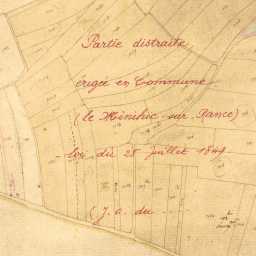 Partie distraite
erigée en Commune
(le Minihic-sur-Rance)
loi du 28 juillet 1849
(J.a. du